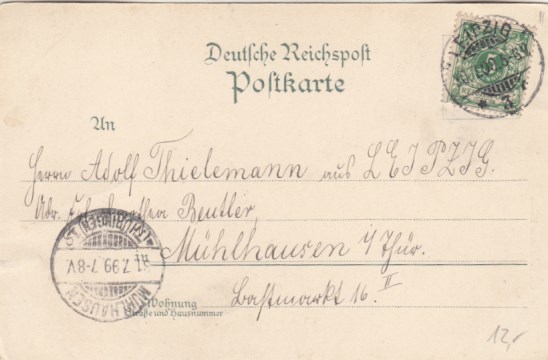 Deutsche Reichspost
Postkarte
LEIPZIG
5
3
An
Herrn Adolf Thielemann aus LEIPZIG.
Adr. Beutler,
Mühlhausen i/Thür.
Bastmarkt 16. II
Wohnung
Straße und Hausnummer
MÜHLHAUSEN
(THÜRINGEN)
7.99 7-8V.
12,-